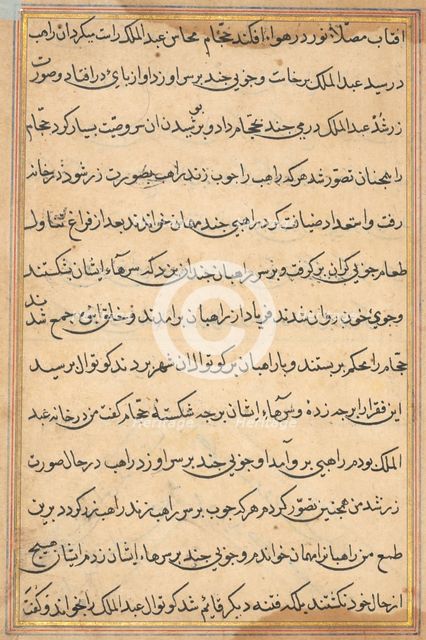 افتاب مصلّا نور در هواء افکند حجّام محاسن عبد الملک راست میکرد ان راهب
در رسید عبد الملک برخاست و چوبی چند بر سر او زد او از پای در افتاد و صورت
زر شد عبد الملک درمی چند بحجّام داد و بر پوشیدن ان سر وصیت بسیار کرد حجّام
را همچنان تصوّر شد هرکه راهب را چوب زند راهب بصورت زر شود در خانه
رفت و استعداد ضیافت کرد و راهبی چند مهمان خواند بعد از فراغ تناول
طعام چوبی کران بر کرفت و بر سر راهبان چندان بزد که سرهاء ایشان بشکستند
و جوی خون روان شدند فریاد از راهبان برامدند و خلق انبوه جمع شدند
حجّام را محکم بربستند و با راهبان بر کوتوال ان شهر بردند کوتوال پرسید
این فقرا را برچه زدۀ و سرهاء ایشان برچه شکستۀ حجّام کفت من در خانه عبد
الملک بودم راهبی بر وی آمد او چوبی چند بر سر او زد راهب در حال صورت
زر شد من همچنین تصوّر کردم هرکه چوب بر سر راهب زند راهب زر کردد برین
طمع من راهبانرا مهمان خواندم و چوبی چند بر سرهاء ایشان زدم ایشان هیچ
از حال خود نکشتند بلکه فتنه دیکر قایم شد کوتوال عبد الملک را خواند و کفت
Heritage Heritage